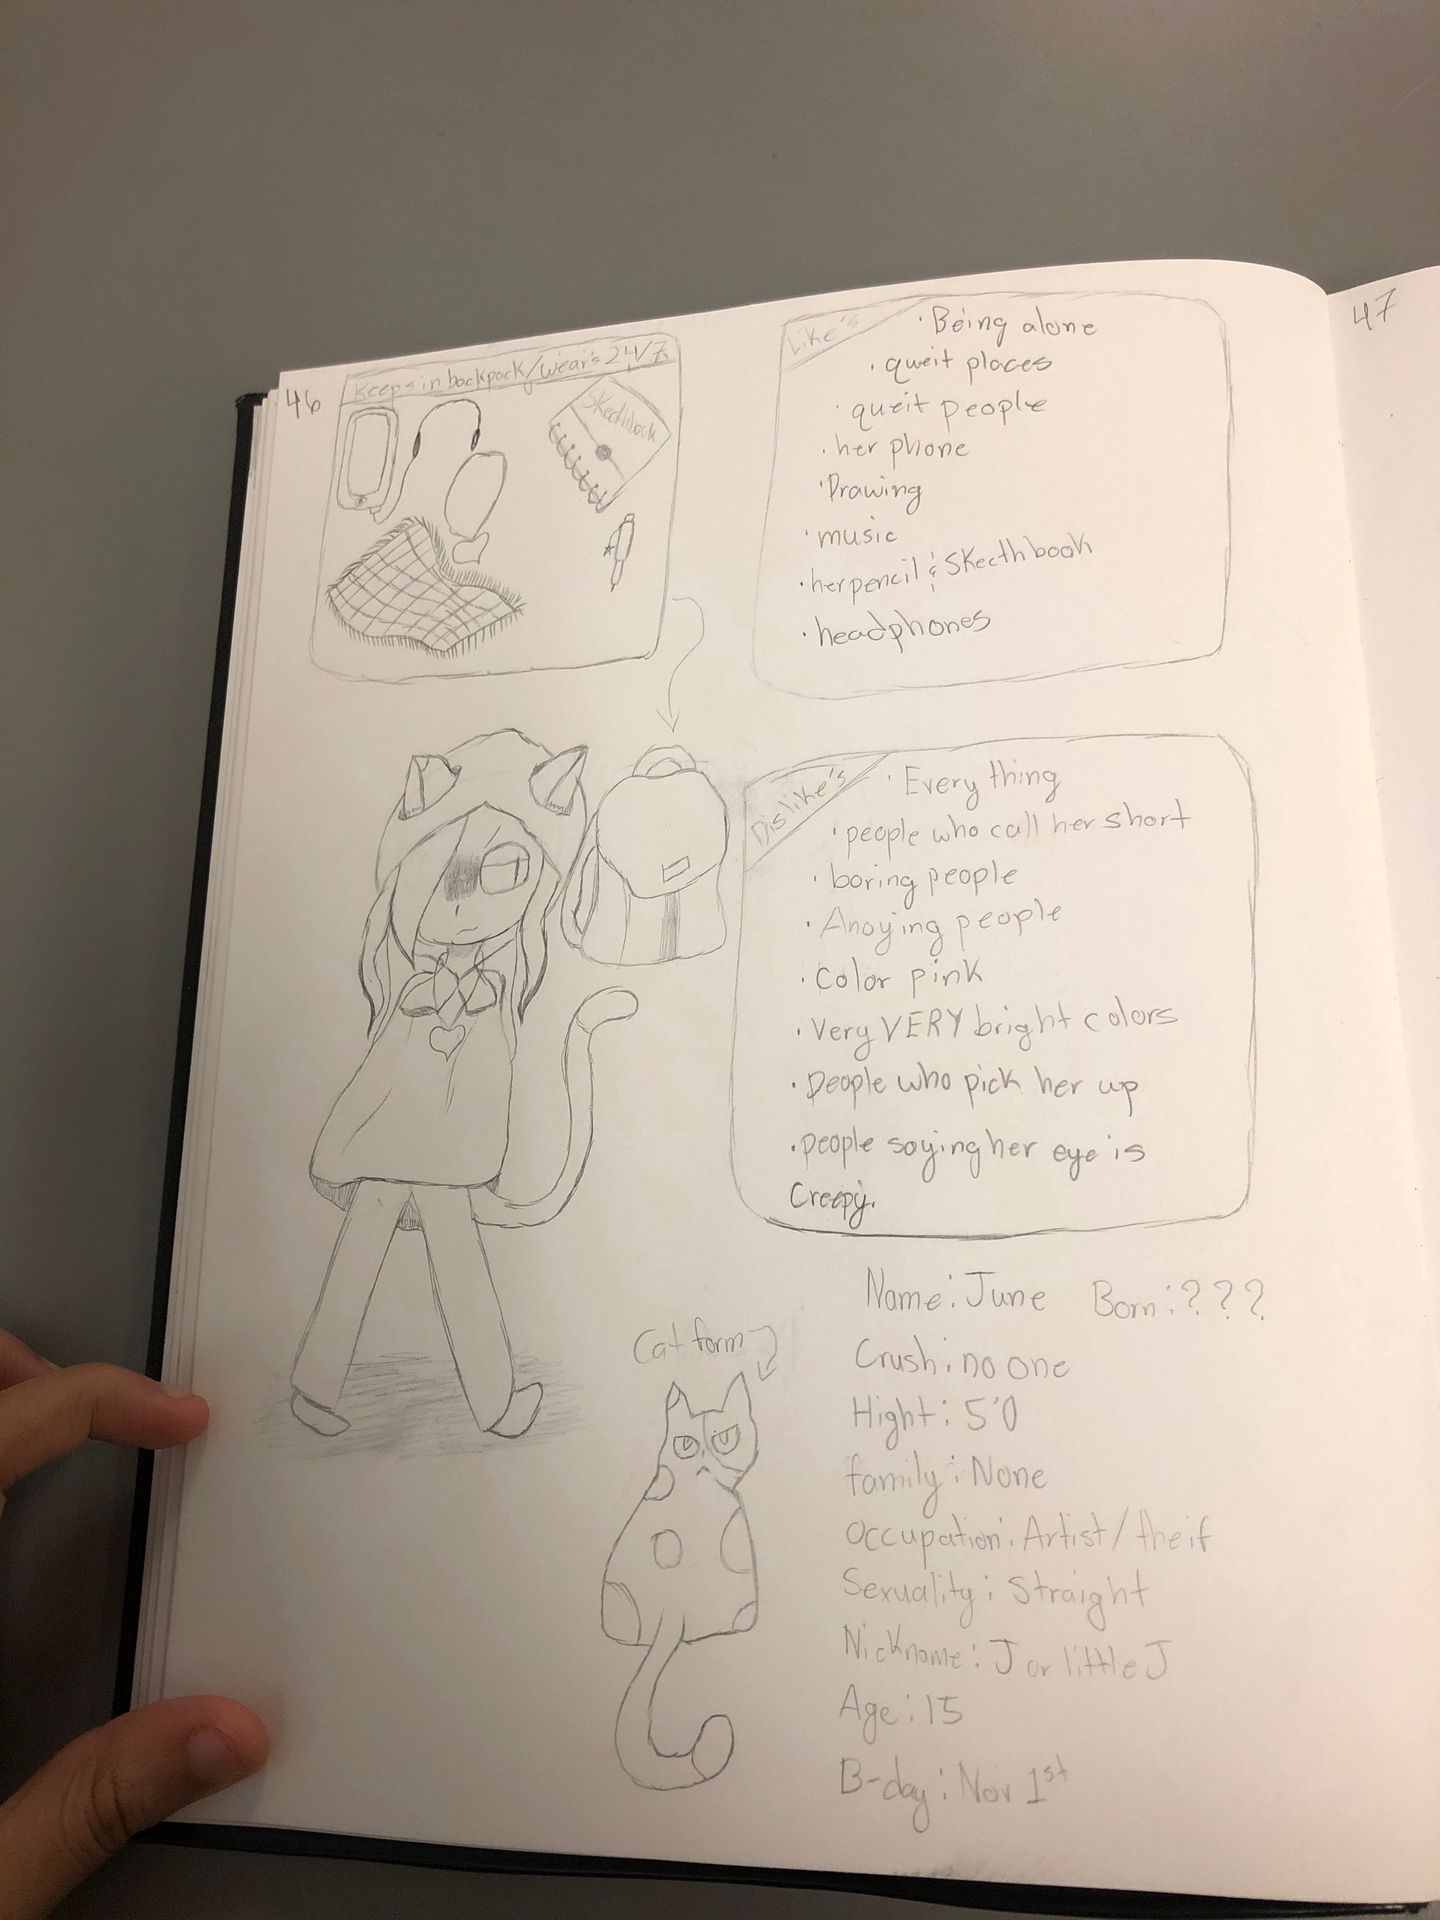 46
47
Keeps in backpack/wear's 24/7
SKecthbook
Like's
· Being alone
· queit places
· queit people
· her phone
· Drawing
· music
· her pencil & SKecthbook
· headphones
Dislike's
· Every thing
· people who call her short
· boring people
· Anoying people
· Color pink
· Very VERY bright colors
· People who pick her up
· people saying her eye is
Creepy.
Name: June Born: ???
Crush: no one
Hight: 5'0
family: None
Occupation: Artist/theif
Sexuality: Straight
Nickname: J or little J
Age: 15
B-day: Nov 1st
Cat form